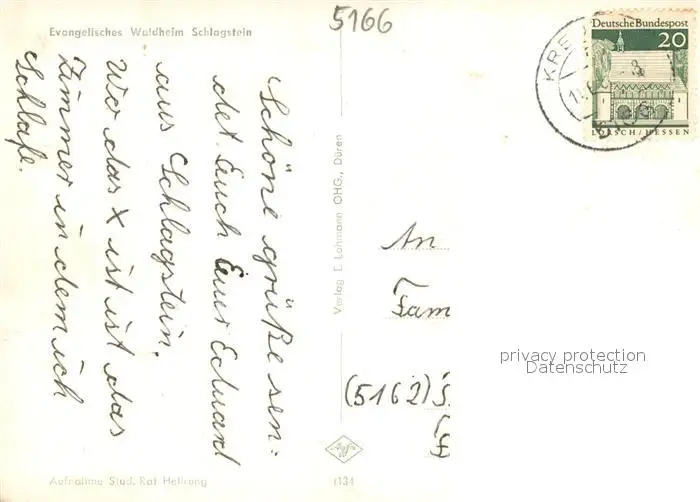 5166
Evangelisches Waldheim Schlagstein
Schöne grüße sen-
det Euch Euer Eduard
aus Schlagstein.
Wo das X ist ist das
Zimmer in dem ich
Schlafe.
Aufnahme Stud. Rat Hellrung
Verlag E. Lohmann OHG., Düren
1134
Deutsche Bundespost
20
LORSCH/HESSEN
KRE
An
Fam
(5162)
privacy protection
Datenschutz